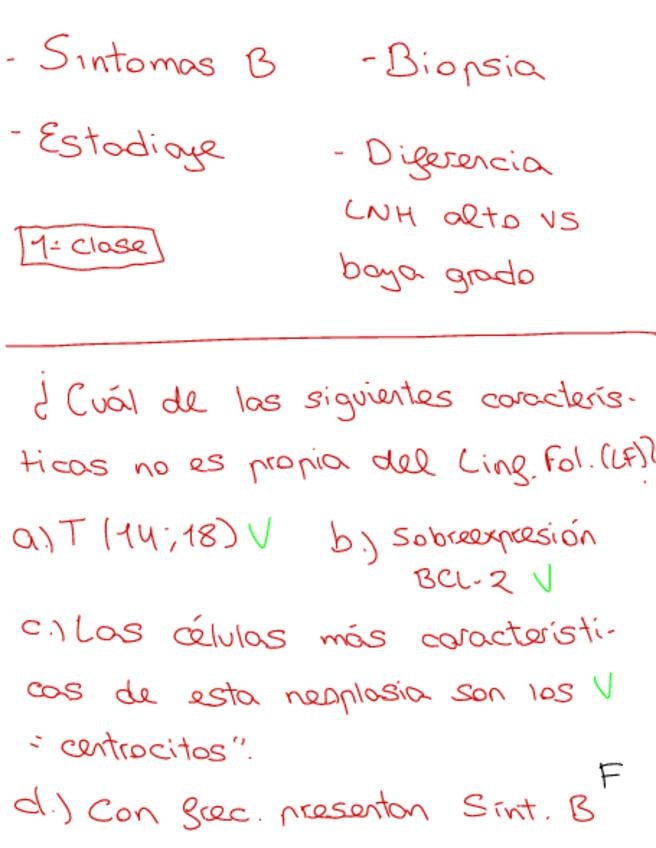 - Síntomas B
- Biopsia
- Estadiaje
- Diferencia
LNH alto VS
baja grado
1ª clase
¿Cuál de las siguientes caracterís-
ticas no es propia del Linf. Fol. (LF)?
a.) T (14;18) V
b.) Sobreexpresión
BCL-2 V
c.) Las células más característi-
cas de esta neoplasia son los V
"centrocitos".
d.) Con frec. presentan Sínt. B F